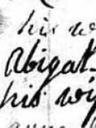 his w
Abigal
his wif